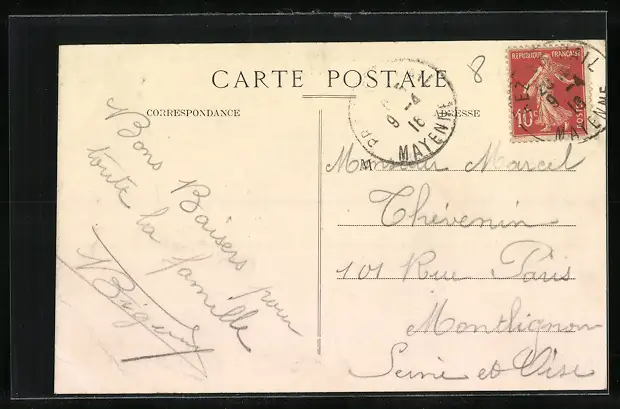 CARTE POSTALE
CORRESPONDANCE
ADRESSE
8
REPUBLIQUE FRANÇAISE
10c
POSTES
9-4
16
MAYENNE
9-4
16
MAYENNE
Bons Baisers pour
toute la famille
Monsieur Marcel
Thévenin
101 Rue Paris
Montlignon
Seine et Oise